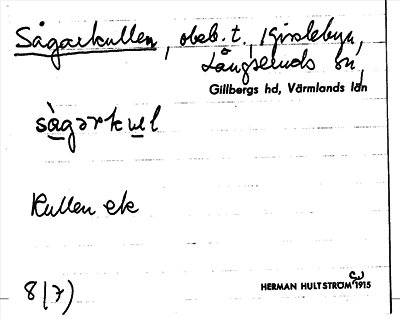 Sågarkullen, obeb. t. Kirslebyn,
Långseruds sn,
Gillbergs hd, Värmlands län
sàgərkul
Kullen etc
8(7)
HERMAN HULTSTRÖM 1915